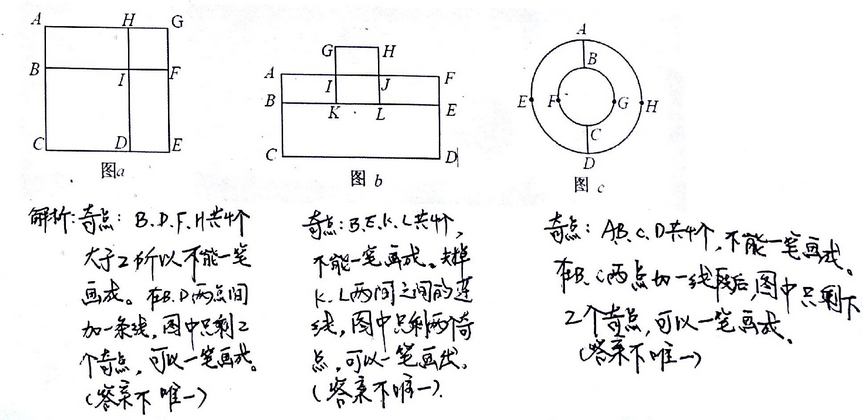 A H G
B I F
C D E
图a
G H
A I J F
B K L E
C D
图 b
A
B
E F G H
C
D
图 c
解析:奇点: B.D.F.H共4个
大于2所以不能一笔
画成。在B.D两点间
加一条线,图中只剩2
个奇点,可以一笔画成。
(答案不唯一)
奇点:B.E.K.L共4个,
不能一笔画成。去掉
K.L两间之间的连
线,图中只剩两个奇
点,可以一笔画出。
(答案不唯一).
奇点: A.B.C.D共4个,不能一笔画成。
在B.C两点加一线段后,图中只剩下
2个奇点,可以一笔画成。
(答案不唯一)